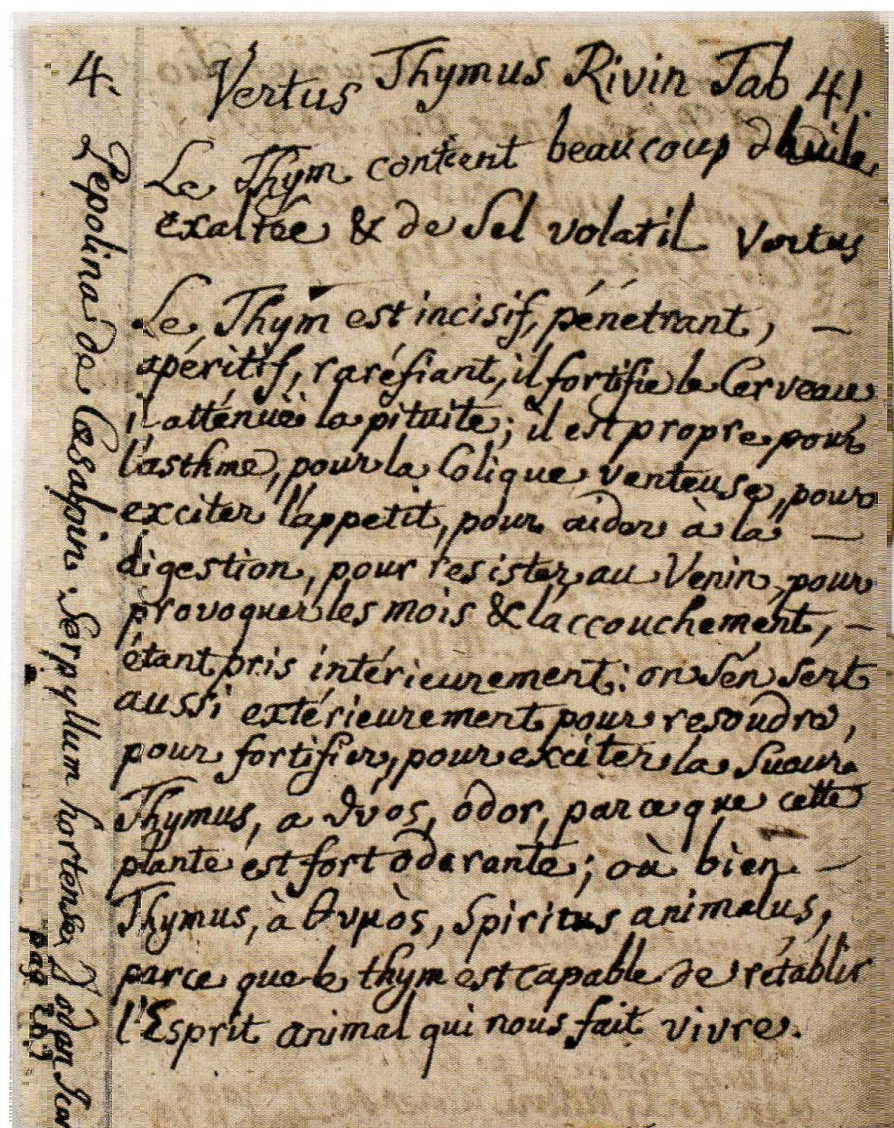 4. Vertus Thymus Rivin Tab 41.
Le Thym contient beaucoup dhuile
exaltée & de Sel volatil Vertus
Le Thym est incisif, pénétrant, —
apéritif, raréfiant, il fortifie le Cerveau
il atténuë la pituite; il est propre pour
l'asthme, pour la Colique venteuse, pour
exciter l'appetit, pour aider à la —
digestion, pour resister au Venin, pour
provoquer les mois & laccouchement, —
étant pris intérieurement: on Sén Sert
aussi extérieurement pour resoudre,
pour fortifier, pour exciter la Sueur.
Thymus, a θvos, odor, parce que cette
plante est fort odorante; où bien —
Thymus, à θυμὸς, Spiritus animalus,
parce que le thym est capable de rétablir
l'Esprit animal qui nous fait vivre.
Pepolina de Cæsalpin. Serpyllum hortense
pag